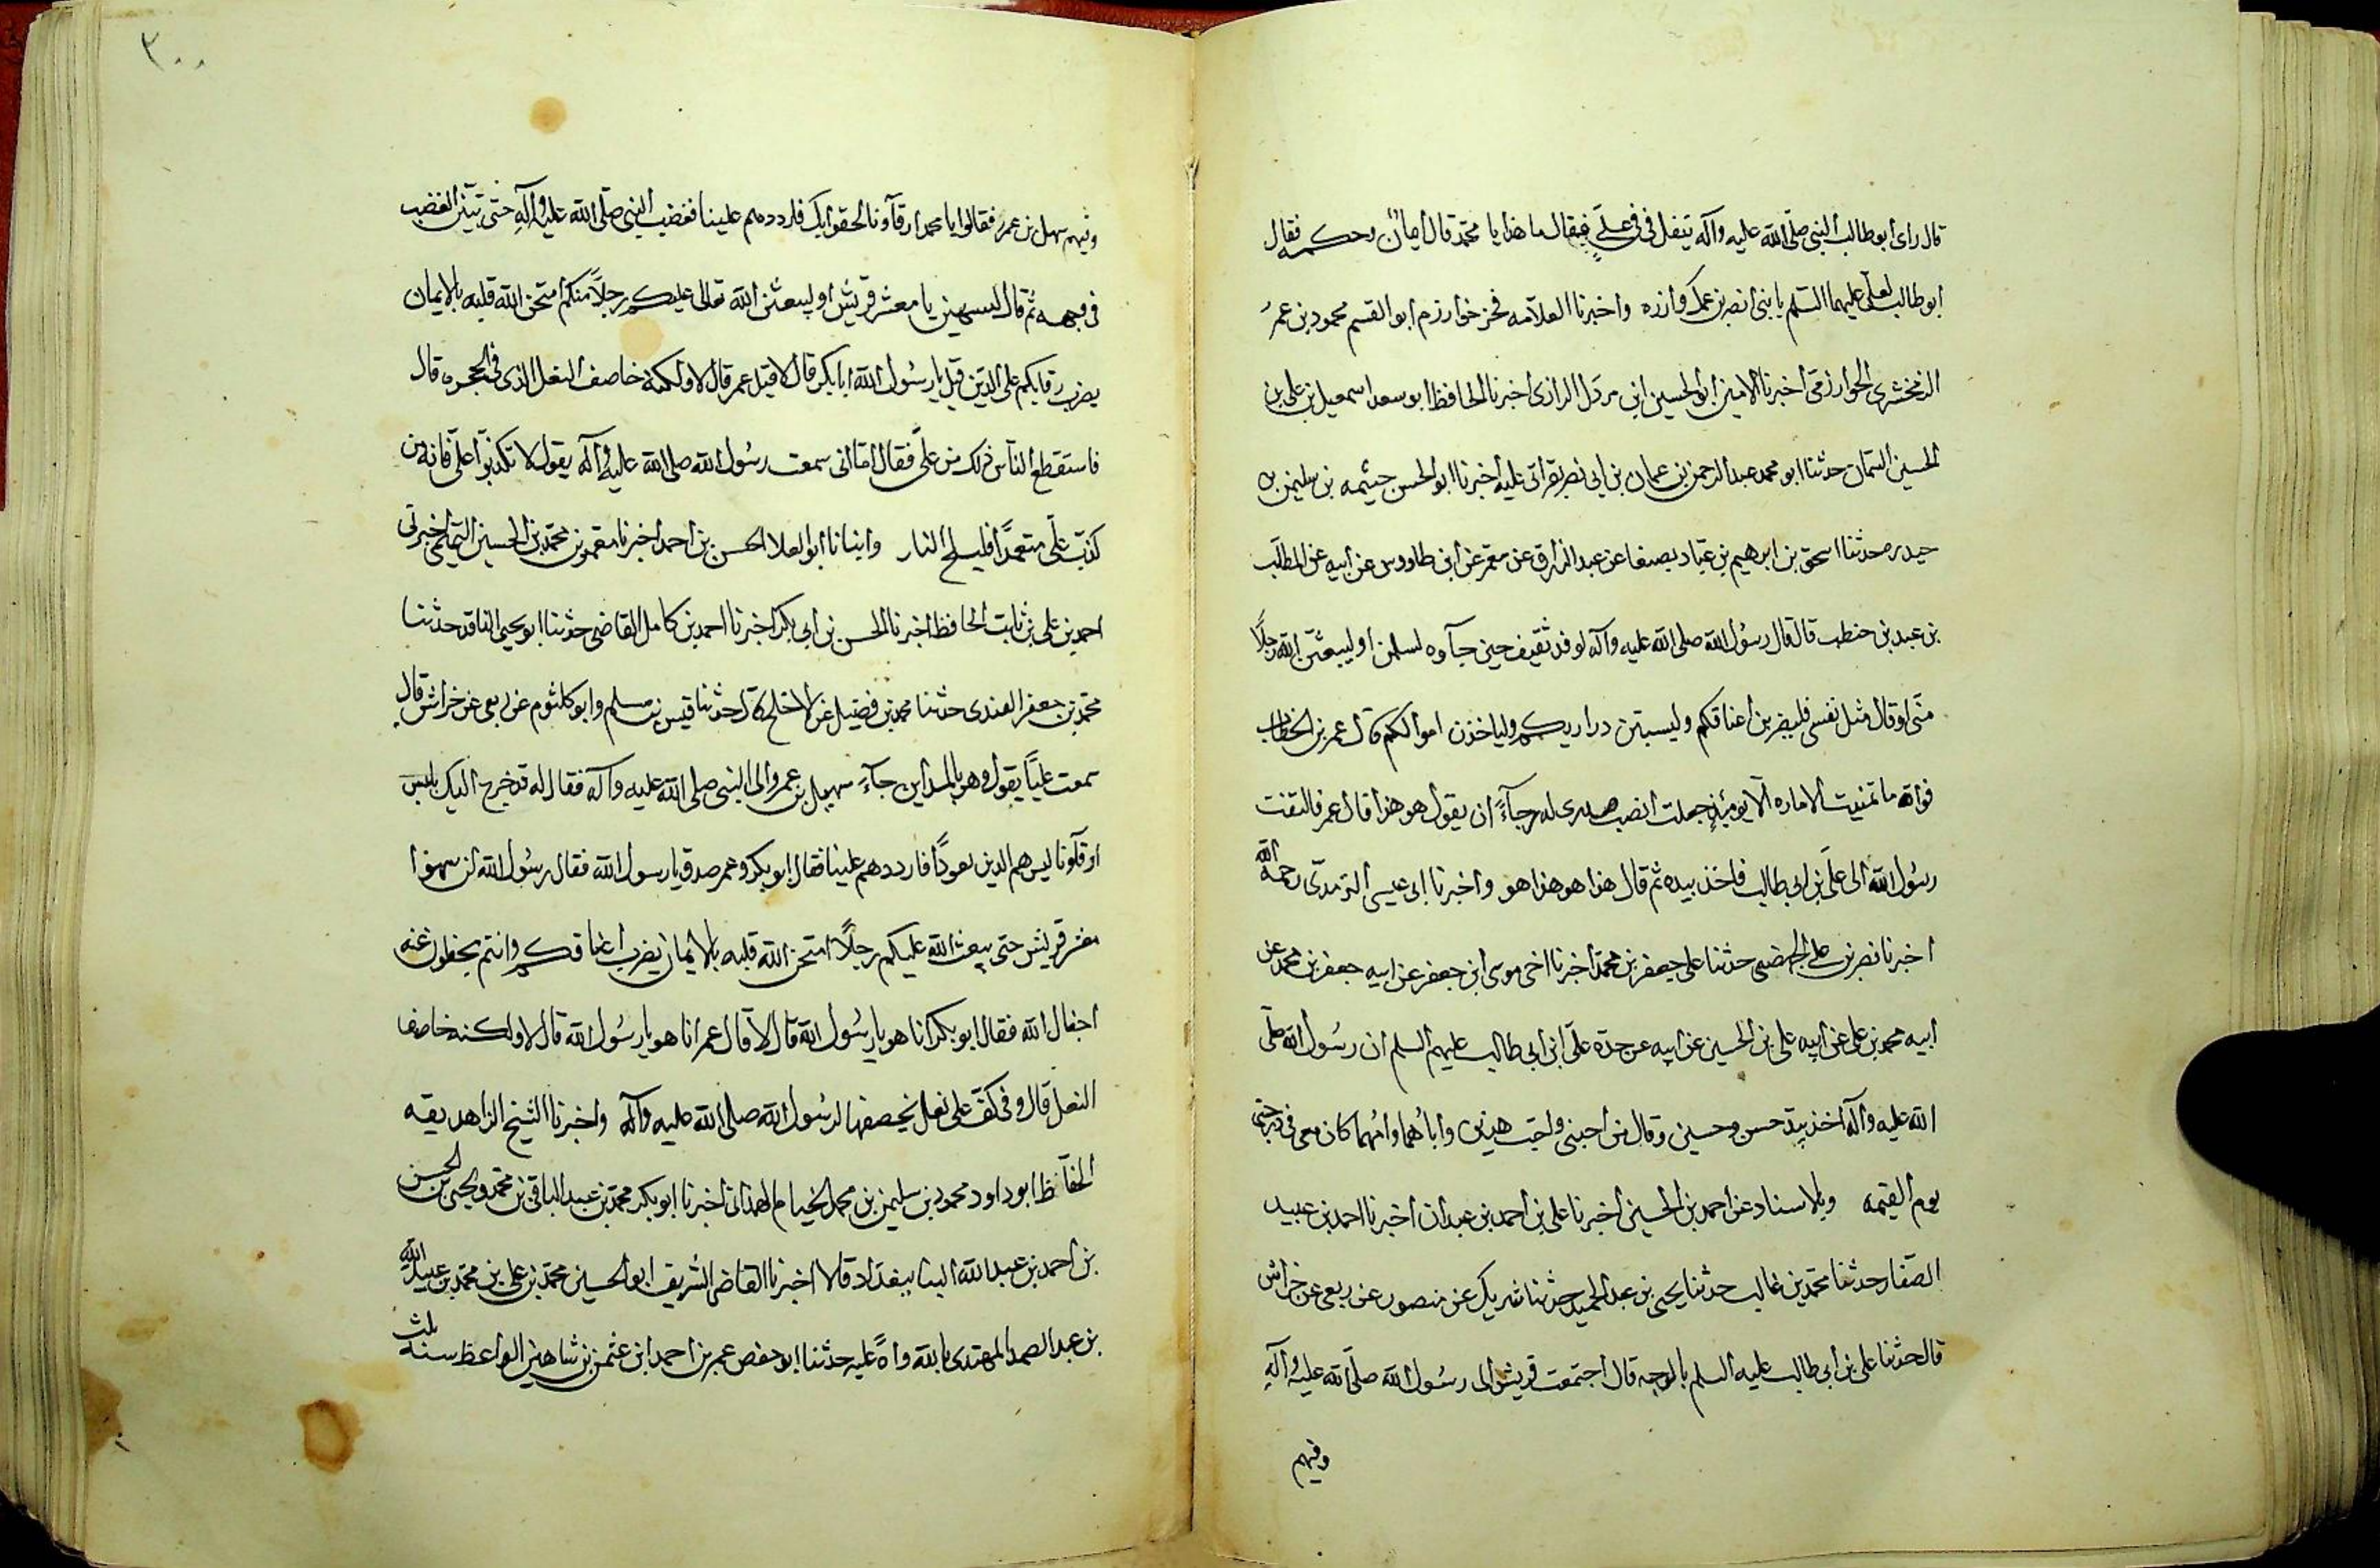 قال رای ابو طالب النبی صلی الله علیه وآله یتفل فی فی علیٍ فقال ما هذا یا محمّد قال ایمانٌ وحکمه فقال
ابو طالب لعلی علیهما السّلم یا بنی انصر بن عمک وازره واخبرنا العلاّمه فخر خوارزم ابو القسم محمود بن عمرُ
الزمخشری الخوارزمی اخبرنا الامین ابو الحسین ابن مردک الرازی اخبرنا الحافظ ابو سعد اسمعیل بن علی بن
الحسین السّمان حدثنا ابو محمد عبد الرحمن بن عمان بن ابی نصر بقراتی علیه اخبرنا ابو الحسن خیثمه بن سلیمن بن
حیدره حدثنا اسحق بن ابرهیم بن عبّاد بصنعا عن عبد الرزاق عن معمر عن ابن طاووس عن ابیه عن المطلّب
بن عبد بن حنطب قال قال رسُول الله صلی الله علیه وآله لوفد ثقیف حین جآوه لسلمن او لیبعثنّ الله رجلاً
منّی او قال مثل نفسی فلیضربن اعناقکم ولیسبین دراریکم ولیاخذن اموالکم قال عمر بن الخطاب
فوالله ما تمنیت الاماره الّا یومئِذٍ جعلت انصب صدری له رجآءً ان یقول هو هذا قال عمر فالتفت
رسُول الله الی علی بن ابی طالب فاخذ بیده ثم قال هذا هو هذا هو واخبرنا ابی عیسی الترمدی رحمه الله
اخبرنا نصر بن علی الجهضمی حدثنا علی جعفر بن محمّد اخبرنا اخی موسی ابن جعفر عن ابیه جعفر بن محمد عن
ابیه محمد بن علی عن ابیه علی بن الحسین عن ابیه عن جدّه علی ابن ابی طالب علیهم السلم ان رسُول الله صلّی
الله علیه وآله اخذ بید حسن وحسین وقال من احبنی واحبّ هذین وابائهما وامّهما کان معی فی درجتی
یوم القیمه وبالاسناد عن احمد بن الحسین اخبرنا علی بن احمد بن عبدان اخبرنا احمد بن عبید
الصّفار حدثنا محمّد بن غالب حدثنا یحیی بن عبد الحمید حدثنا شریک عن منصور عن ربعی عن خراش
قال حدثنا علی بن ابی طالب علیه السلم بالرحبه قال اجتمعت قریش الی رسُول الله صلّی الله علیه وآلهِ
وفیهم
٣٠٠
وفیهم سهل بن عمر فقالوا یا محمد ارقآونا لحقوا بک فارددهم علینا فغضب النبی صلّی الله علیه وآلهِ حتّی تبیّن الغضب
فی وجهه ثم قال لتنتهین یا معشر قریش او لیبعثن الله تعالی علیکم رجلاً منکم امتحن الله قلبه بالایمان
یضرب رقابکم علی الدیّن قیل یا رسُول الله ابا بکر قال لا قیل عمر قال لا ولکنه خاصف النعل الذی فی الحجره قال
فاستقطع النّاس ذلک من علی فقال اما انی سمعت رسُول الله صلی الله علیه وآله یقول لا تکذبوا علی فانه من
کذب علّی متعمّداً فلیلج النار وانبانا ابو العلا الحسن بن احمد اخبرنا معمر بن محمّد بن الحسین التمیمی اخبرنی
احمد بن علی بن ثابت الحافظ اخبرنا الحسن بن ابی بکر اخبرنا احمد بن کامل القاضی حدثنا ابو یحیی الناقد حدثنا
محمّد بن جعفر الفندی حدثنا محمد بن فضیل عن الاجلح قال حدثنا قیس بن مسلم وابو کلثوم عن ربعی عن خراش قال
سمعت علیّاً یقول وهو بالمداین جآء سهیل بن عمرو الی النبی صلی الله علیه وآله فقال له قد خرج الیک ناس
ارقآونا لیس هم الدین بعوداً فارددهم علینا فقال ابو بکر وعمر صدق یا رسول الله فقال رسُول الله لن تنتهوا
معشر قریش حتی یبعث الله علیکم رجلاً امتحن الله قلبه بالایمان یضرب اعناقکم وانتم یجفلون عنه
اجفال الله فقال ابو بکر انا هو یا رسُول الله قال لا قال عمر انا هو یا رسُول الله قال لا ولکنه خاصف
النعل قال وفی کفّ علی نعل یخصفها لرسُول الله صلی الله علیه وآله واخبرنا الشیخ الزاهد بقیه
الحفّاظ ابو داود محمود بن سلیمن بن محمد الخیام الهمذانی اخبرنا ابو بکر محمّد بن عبد الباقی بن محمد ویحیی بن الحسن
بن احمد بن عبد الله البنا ببغداد قالا اخبرنا القاضی الشریف ابو الحسین محمّد بن علی بن محمّد بن عبید الله
بن عبد الصمد المهتدی بالله علیه حدثنا ابو حفص عمر بن احمد ابن عثمن بن شاهین الواعظ سنه ثلث